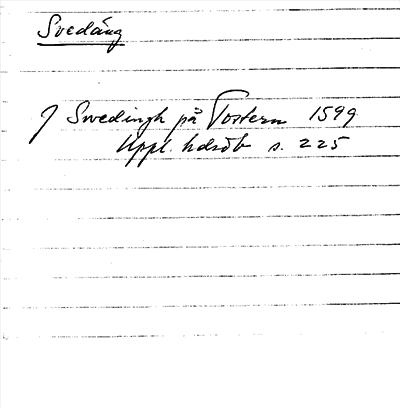 Svedäng
J Swedingh på Tostern 1599
Uppl. hdrdb s. 225